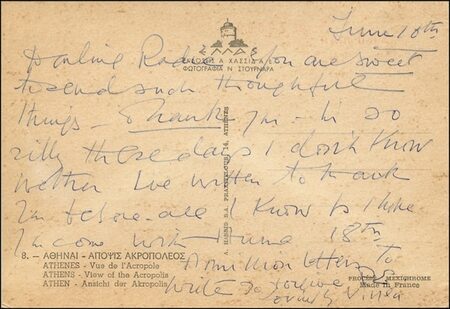 June 10th
ΕΛΛΑΣ
ΕΚΔΟΣΗ Α ΧΑΣΣΙΔ Α Ε
ΦΩΤΟΓΡΑΦΙΑ Ν ΣΤΟΥΡΝΑΡΑ
Darling you are sweet
to send such thoughtful
things - Thank you - I'm so
silly these days I don't know
wether I've written to thank
you before - all I know is I hope
you come with 18th
A. HASSID S.A. 14, ATHENES
8. — ΑΘΗΝΑΙ - ΑΠΟΨΙΣ ΑΚΡΟΠΟΛΕΩΣ
ATHENES - Vue de l'Acropole
ATHENS - View of the Acropolis
ATHEN - Ansicht der Akropolis
A million letters to
write so forgive
PROCÉDÉ MEXICHROME
Made in France